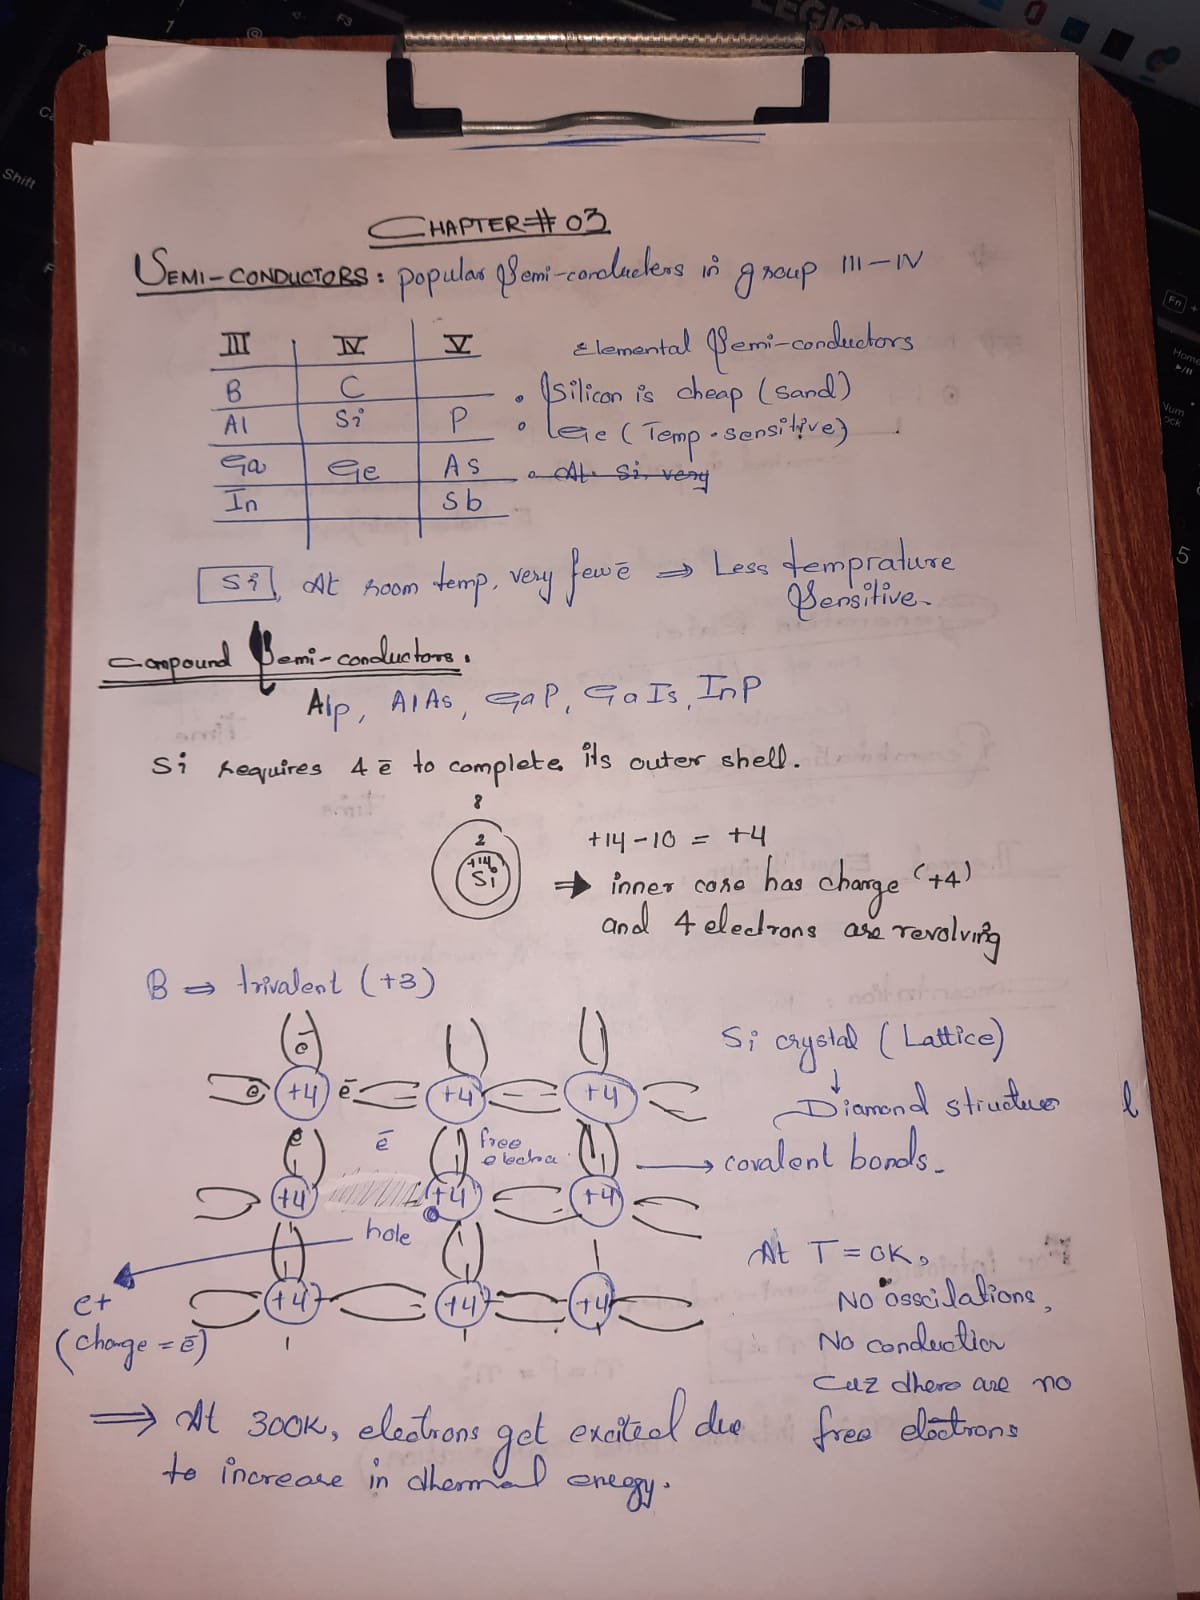 CHAPTER # 03
SEMI-CONDUCTORS: popular Semi-conducters in group III-IV
III IV V
B C
Al Si P
Ga Ge As
In Sb
Elemental Semi-conductors
• Silicon is cheap (sand)
• Ge (Temp. sensitive)
• At Si very
Si, At room temp, very few ē ⇒ Less temprature
Sensitive.
Compound Semi-conductors.
Alp, AlAs, GaP, GaIs, InP
Si requires 4 ē to complete its outer shell.
8
2
+14
Si
+14-10 = +4
⇒ inner core has charge (+4)
and 4 electrons are revolving
B ⇒ trivalent (+3)
Si crystal (Lattice)
↓
Diamond structure
→ covalent bonds.
ē
e +4 ē +4 +4
e ē free
electron
+4 +4 +4
hole
+4 +4 +4
e+
(charge = ē)
At T = 0K,
No osscilations,
No conduction
Cuz there are no
free electrons
⇒ At 300K, electrons get excited due
to increase in thermal energy.
LEGION
Shift
F3
Fn
Home
Num
5